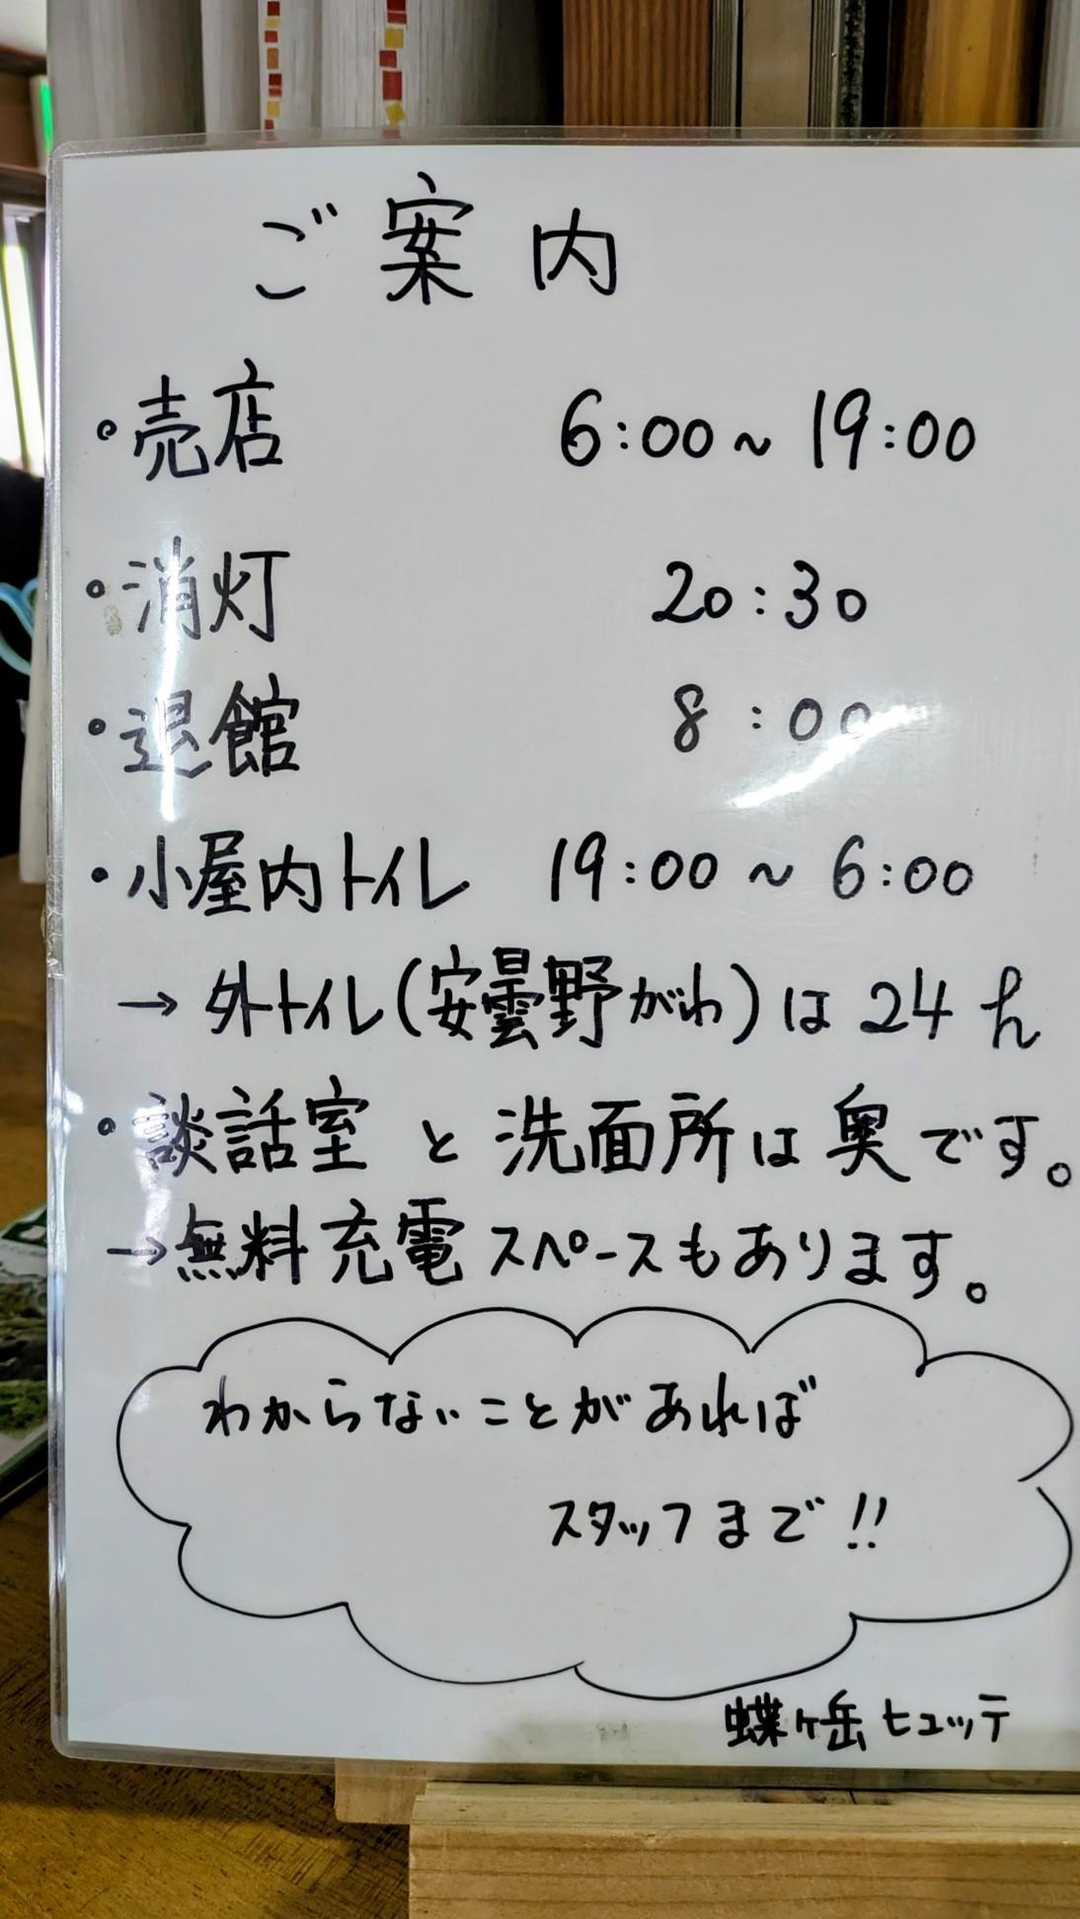 ご案内
・売店 6:00~19:00
・消灯 20:30
・退館 8:00
・小屋内トイレ 19:00~6:00
→外トイレ(安曇野がわ)は24h
・談話室と洗面所は奥です。
→無料充電スペースもあります。
わからないことがあれば
スタッフまで!!
蝶ヶ岳ヒュッテ